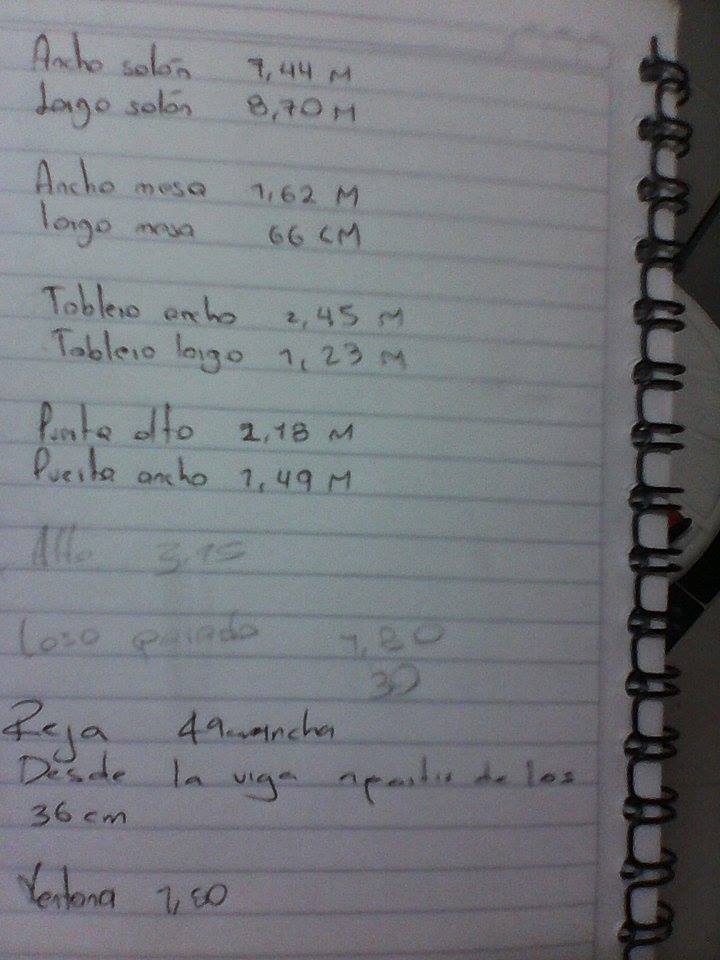 Ancho salón 7,44 M
Largo salón 8,70 M
Ancho mesa 1,62 M
largo mesa 66 CM
Tablero ancho 2,45 M
Tablero largo 1,23 M
Puerta alto 2,18 M
Puerta ancho 1,49 M
Alto 3,15
Loso 1,80
30
Reja 49cm ancha
Desde la viga apartir de los
36 cm
Ventana 1,80